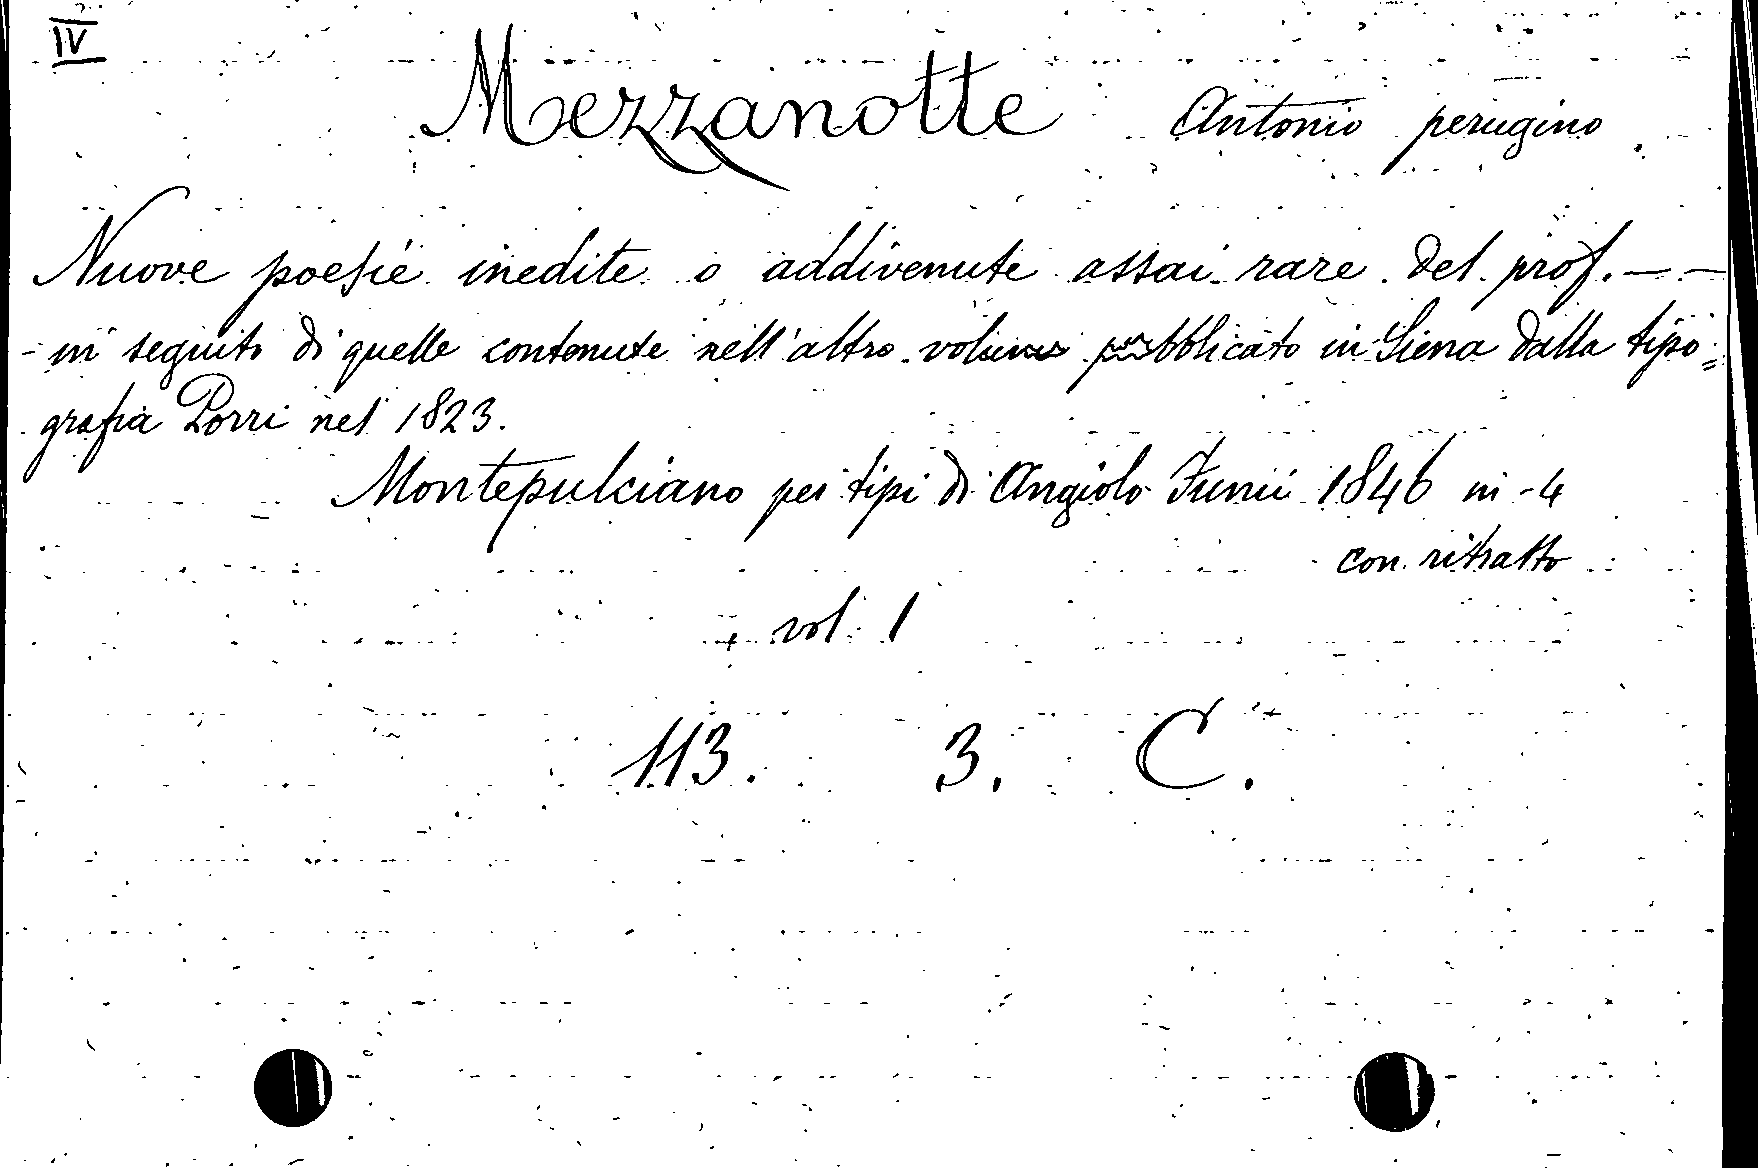 IV
Mezzanotte Antonio perugino
Nuove poesie inedite o addivenute assai rare del prof. — —
- in seguito di quelle contenute nell'altro volume pubblicato in Siena dalla tipo=
grafia Porri nel 1823.
Montepulciano pei tipi di Angiolo Fumi 1846 in-4
con ritratto
vol. 1
113. 3. C.